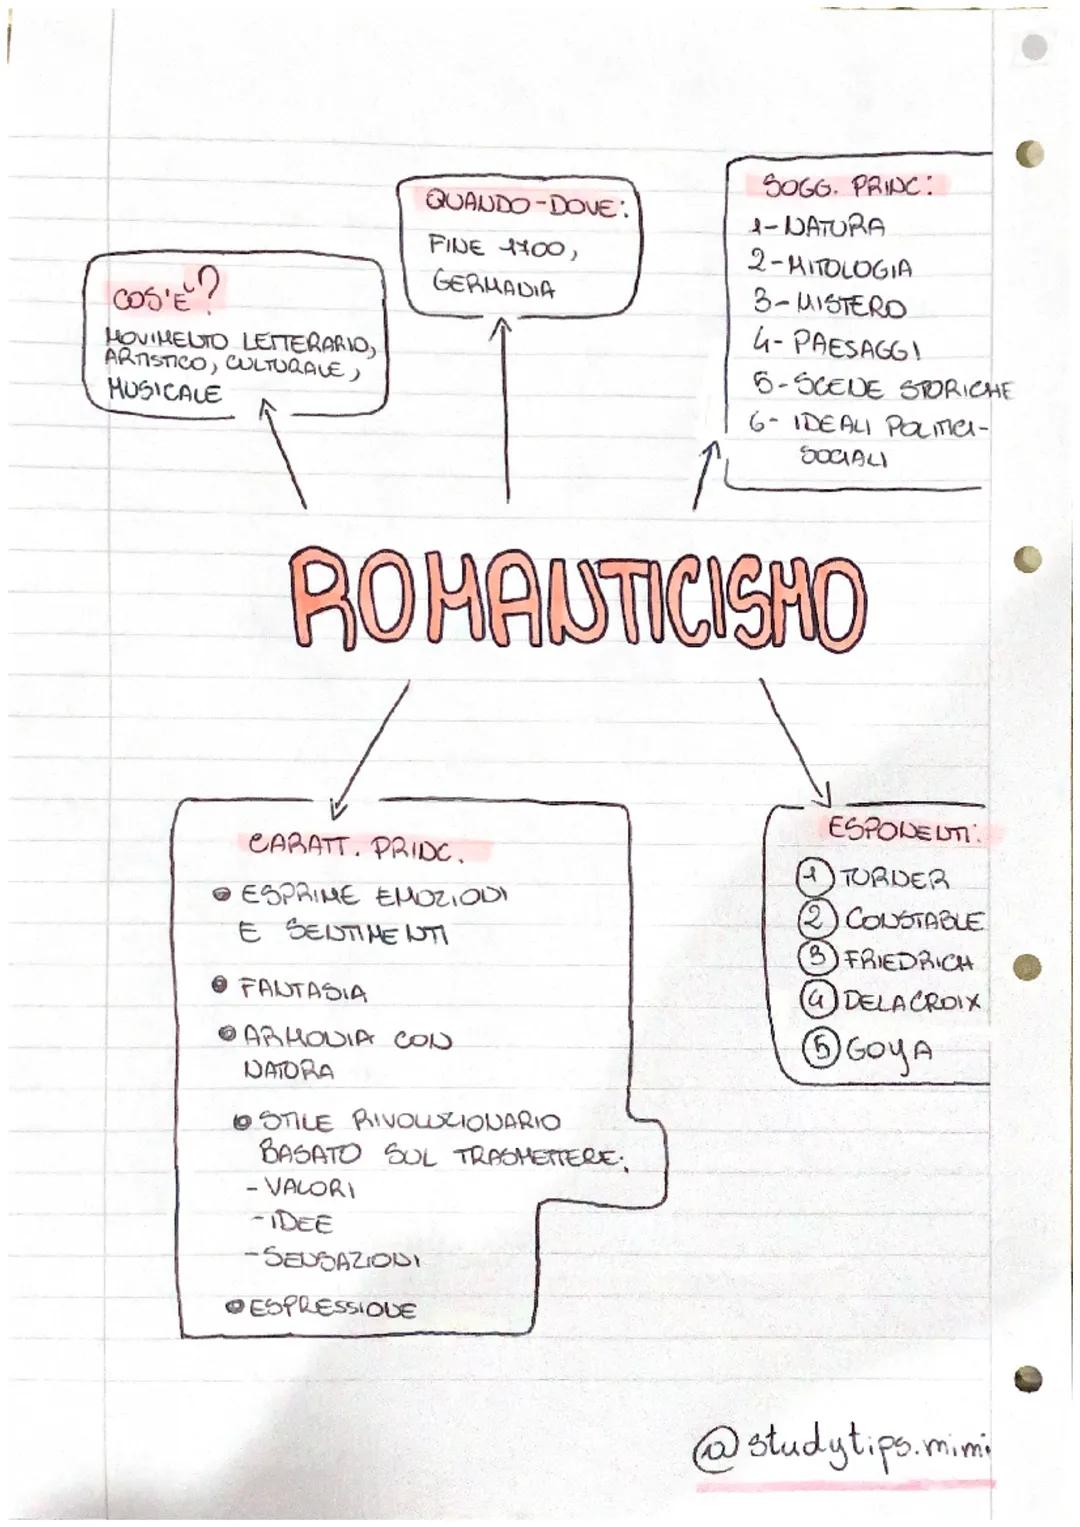 COS'È?
MOVIMENTO LETTERARIO,
ARTISTICO, CULTURALE,
MUSICALE
QUANDO-DOVE:
FINE 1700,
GERMANIA
SOGG. PRINC:
1-NATURA
2-MITOLOGIA
3-MISTERO
4-PAESAGGI
5-SCENE STORICHE
6-IDEALI POLITICI-
SOCIALI
ROMANTICISMO
CARATT. PRINC.
ESPRIME EMOZIONI
E SENTIMENTI
FANTASIA
ARMONIA CON
NATURA
STILE RIVOLUZIONARIO
BASATO SUL TRASMETTERE:
-VALORI
-IDEE
-SENSAZIONI
ESPRESSIONE
ESPONENTI:
1 TURNER
2 CONSTABLE
3 FRIEDRICH
4 DELACROIX
5 GOYA
@studytips.mimi